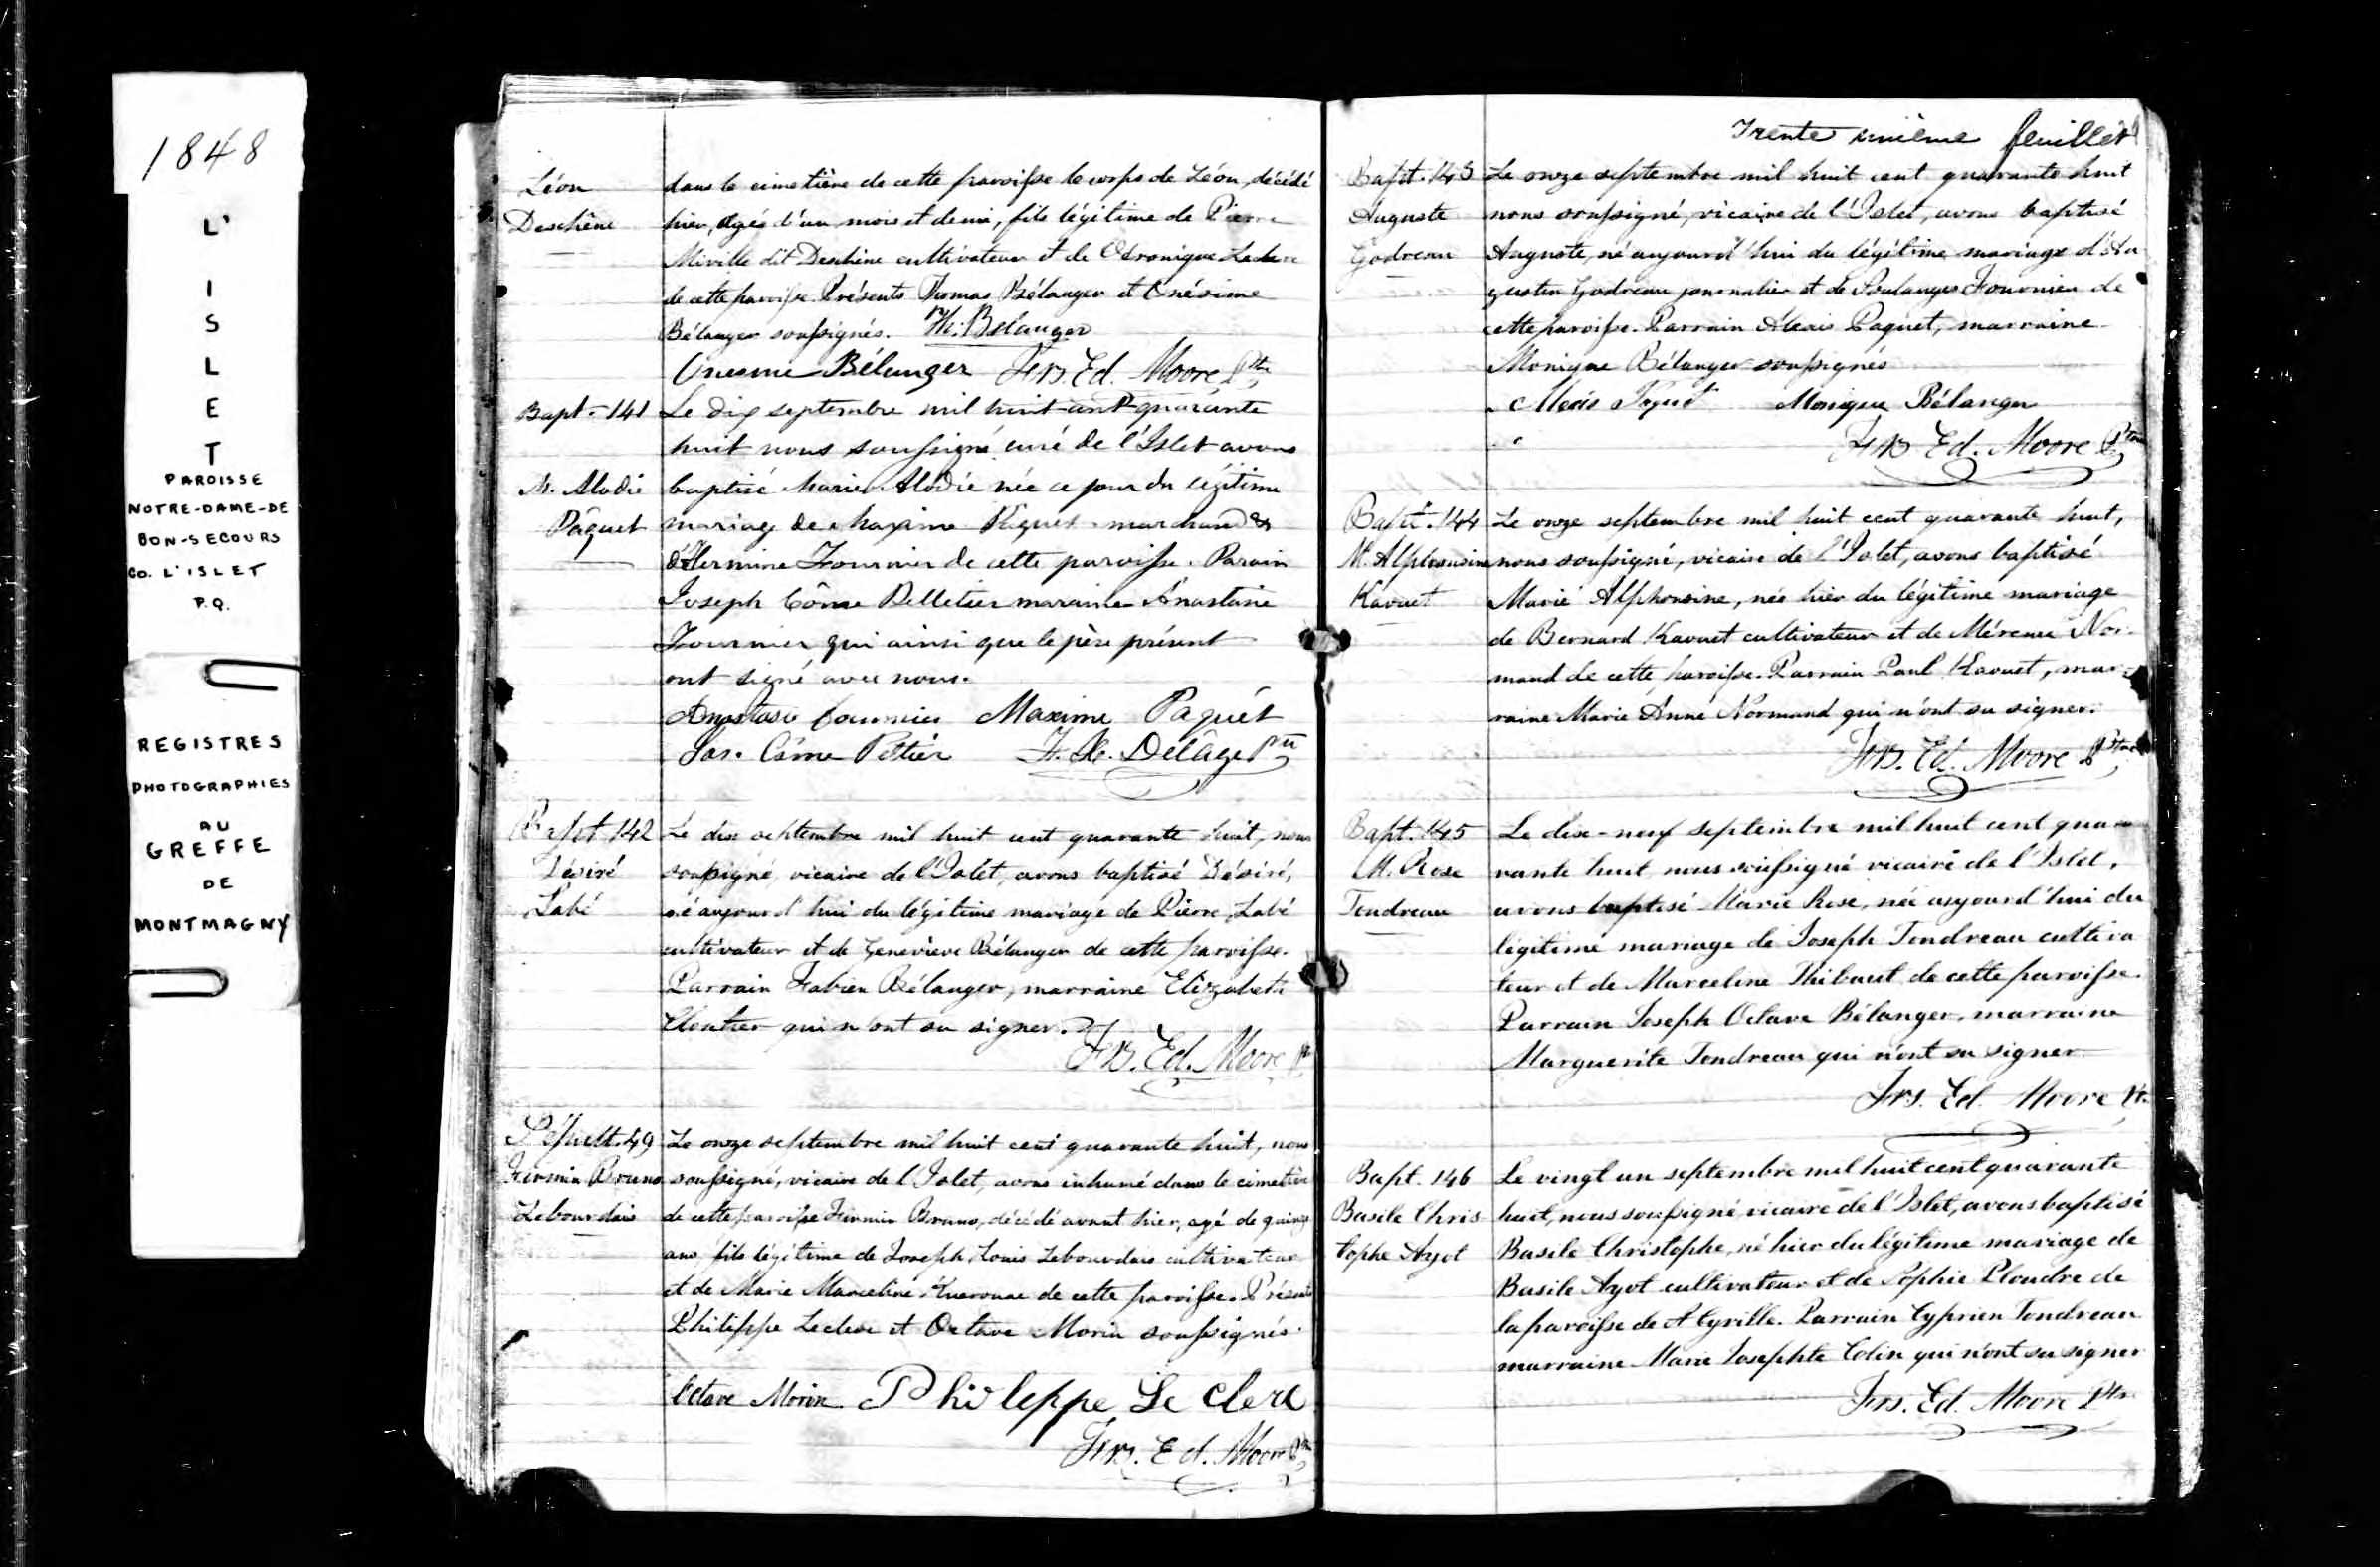 1848
L'
I
S
L
E
T
PAROISSE
NOTRE-DAME-DE
BON-SECOURS
CO. L'ISLET
P.Q.
REGISTRES
PHOTOGRAPHIES
AU
GREFFE
DE
MONTMAGNY
Léon
Deschêne
dans le cimetière de cette paroisse le corps de Léon, décédé
hier, agés d'un mois et demi, fils légitime de Pierre
Miville dit Deschêne cultivateur et de Véronique Leclerc
de cette paroisse. Présents Thomas Bélanger et Onésime
Bélanger soussignés. Th. Bélanger
Onesime Bélanger Frs. Ed. Moore Ptre
Bapt. 141
M. Alodie
Pâquet
Le dix septembre mil huit cent quarante
huit nous soussigné curé de l'Islet avons
baptisé Marie Alodie née ce jour du légitime
mariage de Maxime Pâquet marchand &
d'Hermine Fournier de cette paroisse. Parain
Joseph Côme Pelletier maraine Anastasie
Fournier qui ainsi que le père présent
ont signé avec nous.
Anastasie fournier Maxime Paquét
Jos. Côme Peltier F. X. Delâge Ptre
Bapt. 142
Désiré
Labé
Le dix septembre mil huit cent quarante huit, nous
soussigné, vicaire de l'Islet, avons baptisé Désiré,
né aujourd'hui du légitime mariage de Pierre Labé
cultivateur et de Geneviève Bélanger de cette paroisse.
Parrain Fabien Bélanger, marraine Elizabeth
Cloutier qui n'ont su signer.
Frs. Ed. Moore Ptre
Sépult. 49
Firmin Bruno
Lebourdais
Le onze septembre mil huit cent quarante huit, nous
soussigné, vicaire de l'Islet, avons inhumé dans le cimetière
de cette paroisse Firmin Bruno, décédé avant hier, agé de quinze
ans, fils légitime de Joseph Louis Lebourdais cultivateur
et de Marie Marceline Kuerouac de cette paroisse. Présents
Philippe Leclerc et Octave Morin soussignés.
Octave Morin Philippe Le Clerc
Frs. Ed. Moore Ptre
Trente unième feuillet
Bapt. 143
Auguste
Godreau
Le onze septembre mil huit cent quarante huit
nous soussigné, vicaire de l'Islet, avons baptisé
Auguste, né aujourd'hui du légitime mariage d'Au
gustin Godreau journalier et de Soulanges Fournier de
cette paroisse. Parrain Alexis Paquet, marraine
Monique Bélanger soussignés
Alexis Paquet Monique Bélanger
Frs Ed. Moore Ptre
Bapt. 144
M. Alphonsine
Kavuet
Le onze septembre mil huit cent quarante huit,
nous soussigné, vicaire de l'Islet, avons baptisé
Marie Alphonsine, née hier du légitime mariage
de Bernard Kavuet cultivateur et de Mérence Nor-
mand de cette paroisse. Parrain Paul Kavuet, mar-
raine Marie Anne Normand qui n'ont su signer.
Frs. Ed. Moore Ptre
Bapt. 145
M. Rose
Tondreau
Le dix-neuf septembre mil huit cent qua
rante huit nous soussigné vicaire de l'Islet,
avons baptisé Marie Rose, née aujourd'hui du
légitime mariage de Joseph Tondreau cultiva
teur et de Marceline Thibaut de cette paroisse.
Parrain Joseph Octave Bélanger, marraine
Marguerite Tondreau qui n'ont su signer
Frs. Ed. Moore Ptr.
Bapt. 146
Basile Chris
tophe Ayot
Le vingt un septembre mil huit cent quarante
huit, nous soussigné, vicaire de l'Islet, avons baptisé
Basile Christophe, né hier du légitime mariage de
Basile Ayot cultivateur et de Sophie Ploudre de
la paroisse de St Cyrille. Parrain Cyprien Tondreau
marraine Marie Josephte Colin qui n'ont su signer
Frs. Ed. Moore Ptr.